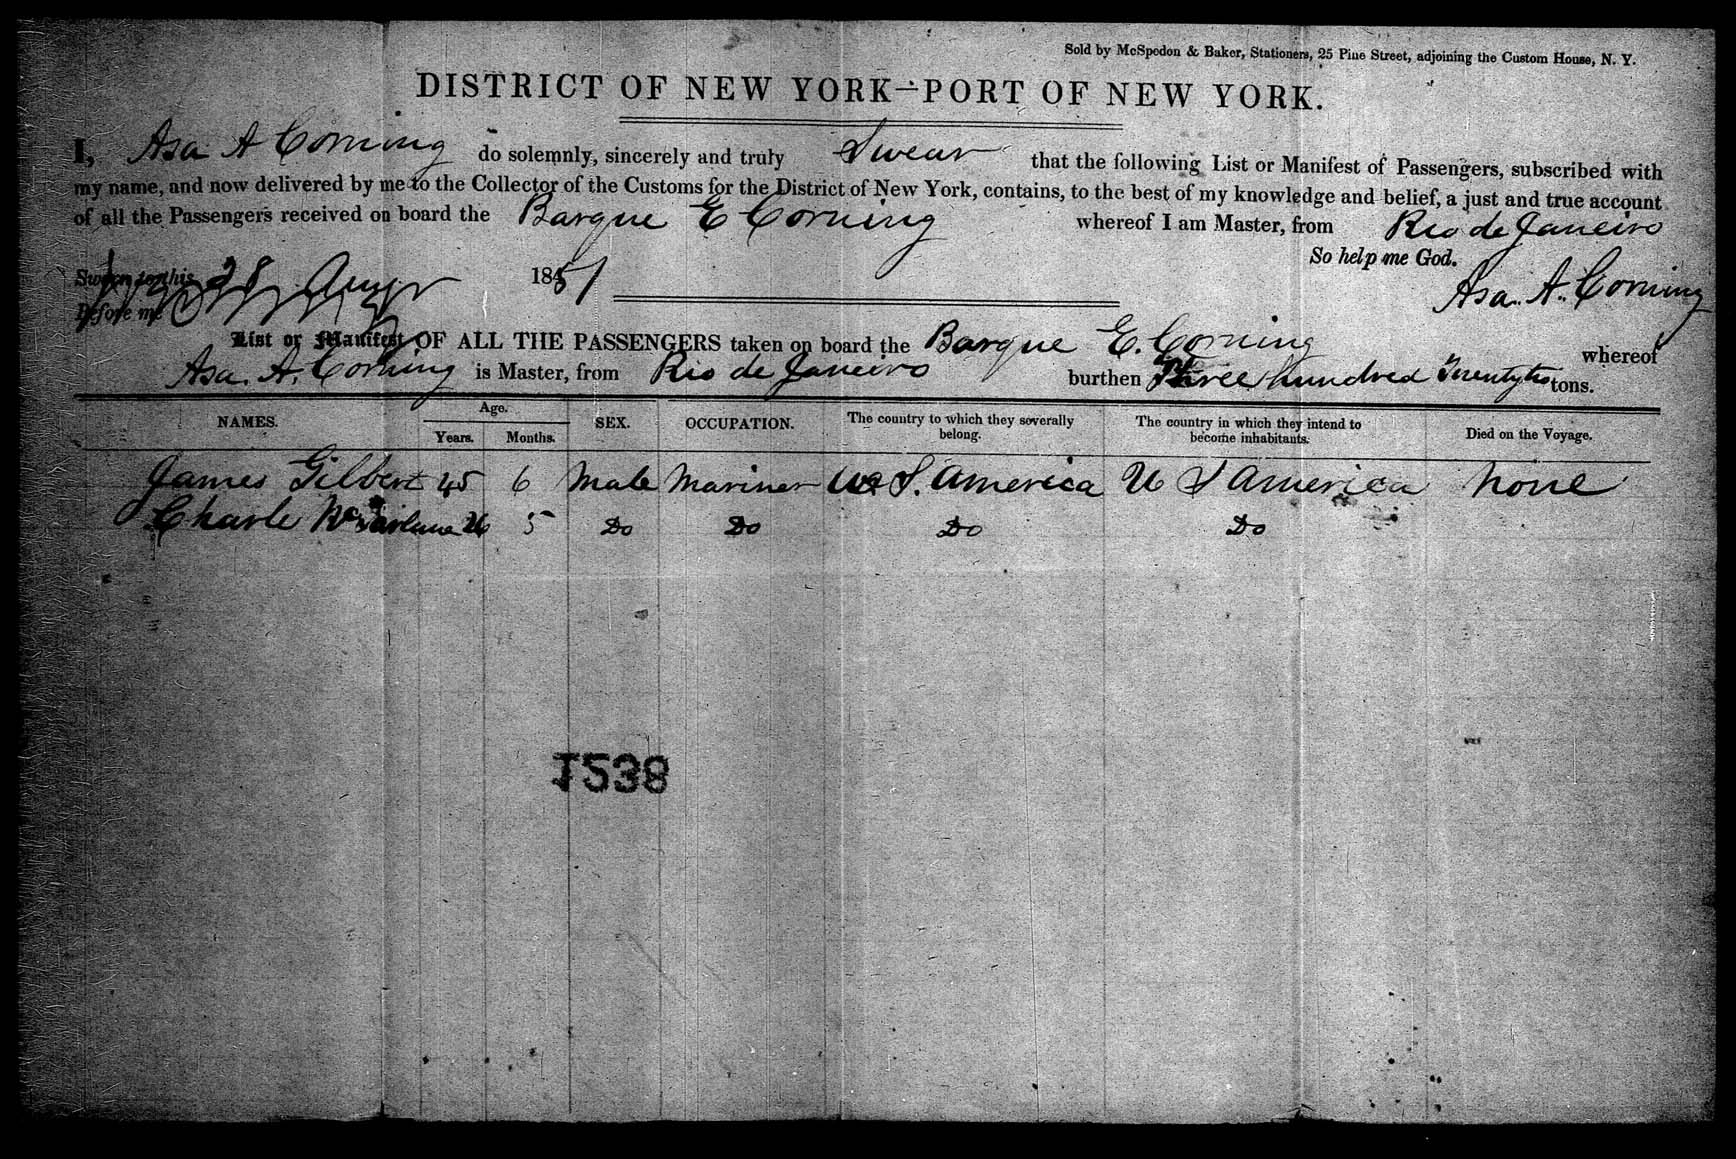 Sold by McSpedon & Baker, Stationers, 25 Pine Street, adjoining the Custom House, N. Y.
DISTRICT OF NEW YORK—PORT OF NEW YORK.
I, Asa A Corning do solemnly, sincerely and truly Swear that the following List or Manifest of Passengers, subscribed with
my name, and now delivered by me to the Collector of the Customs for the District of New York, contains, to the best of my knowledge and belief, a just and true account
of all the Passengers received on board the Barque E Corning whereof I am Master, from Rio de Janeiro
So help me God.
Sworn to this 28 Augr 1851
Asa. A. Corning
Before me
List or Manifest OF ALL THE PASSENGERS taken on board the Barque E. Corning whereof
Asa. A. Corning is Master, from Rio de Janeiro burthen Three hundred Twenty two tons.
NAMES. Age. Years. Months. SEX. OCCUPATION. The country to which they severally belong. The country in which they intend to become inhabitants. Died on the Voyage.
James Gilbert 45 6 Male Mariner U S. America U S America None
Charle McFarlane 26 5 Do Do Do Do
1538